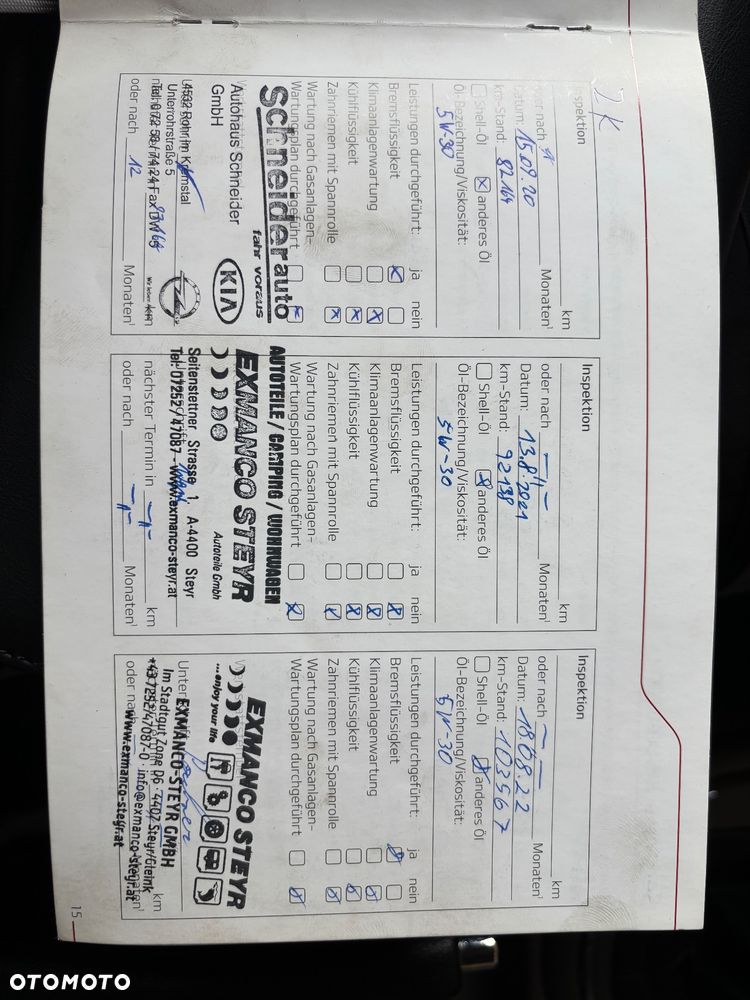 2 K
Inspektion
km
oder nach 1 Monaten¹
Datum: 15.09.20
km-Stand: 82164
☐ Shell-Öl ☒ anderes Öl
Öl-Bezeichnung/Viskosität:
5W30
Leistungen durchgeführt: ja nein
Bremsflüssigkeit ☒ ☐
Klimaanlagenwartung ☐ ☒
Kühlflüssigkeit ☐ ☒
Zahnriemen mit Spannrolle ☐ ☒
Wartung nach Gasanlagen-
Wartungsplan durchgeführt ☐ ☒
Schneider auto
fahr voraus
Autohaus Schneider
GmbH
KIA
4532 Rohr im Kremstal
Unterrohrstraße 5
Tel. 07258/7424 Fax DW
oder nach 12 Monaten¹
Inspektion
km
oder nach -"- Monaten¹
Datum: 13.8.2021
km-Stand: 92138
☐ Shell-Öl ☒ anderes Öl
Öl-Bezeichnung/Viskosität:
5W-30
Leistungen durchgeführt: ja nein
Bremsflüssigkeit ☐ ☒
Klimaanlagenwartung ☐ ☒
Kühlflüssigkeit ☐ ☒
Zahnriemen mit Spannrolle ☐ ☒
Wartung nach Gasanlagen-
Wartungsplan durchgeführt ☐ ☒
AUTOTEILE / CAMPING / WOHNWAGEN
EXMANCO STEYR
Autoteile Gmbh
Seitenstettner Strasse 1 A-4400 Steyr
Tel. 07252/47087 - www.exmanco-steyr.at
nächster Termin in -"- km
oder nach -"- Monaten¹
Inspektion
km
oder nach - - Monaten¹
Datum: 18.08.22
km-Stand: 103567
☐ Shell-Öl ☒ anderes Öl
Öl-Bezeichnung/Viskosität:
5W-30
Leistungen durchgeführt: ja nein
Bremsflüssigkeit ☒ ☐
Klimaanlagenwartung ☐ ☒
Kühlflüssigkeit ☐ ☒
Zahnriemen mit Spannrolle ☐ ☒
Wartung nach Gasanlagen-
Wartungsplan durchgeführt ☐ ☒
EXMANCO STEYR
...enjoy your life
EXMANCO-STEYR GMBH
Im Stadtgut Zone D6 · 4407 Steyr/Gleink
+43 7252/47087-0 · info@exmanco-steyr.at
km
oder nach www.exmanco-steyr.at Monaten¹
15
OTOMOTO